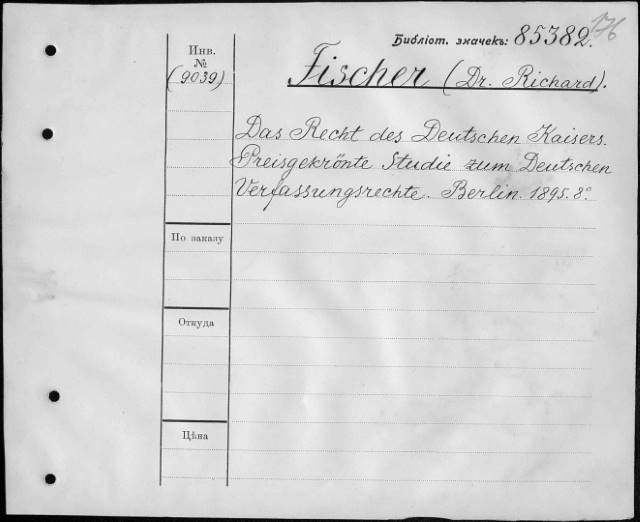 176
Библіот. значекъ: 85382.
Инв.
№
(9039)
Fischer (Dr. Richard).
Das Recht des Deutschen Kaisers.
Preisgekrönte Studie zum Deutschen
Verfassungsrechte. Berlin. 1895. 8°
По заказу
Откуда
Цѣна